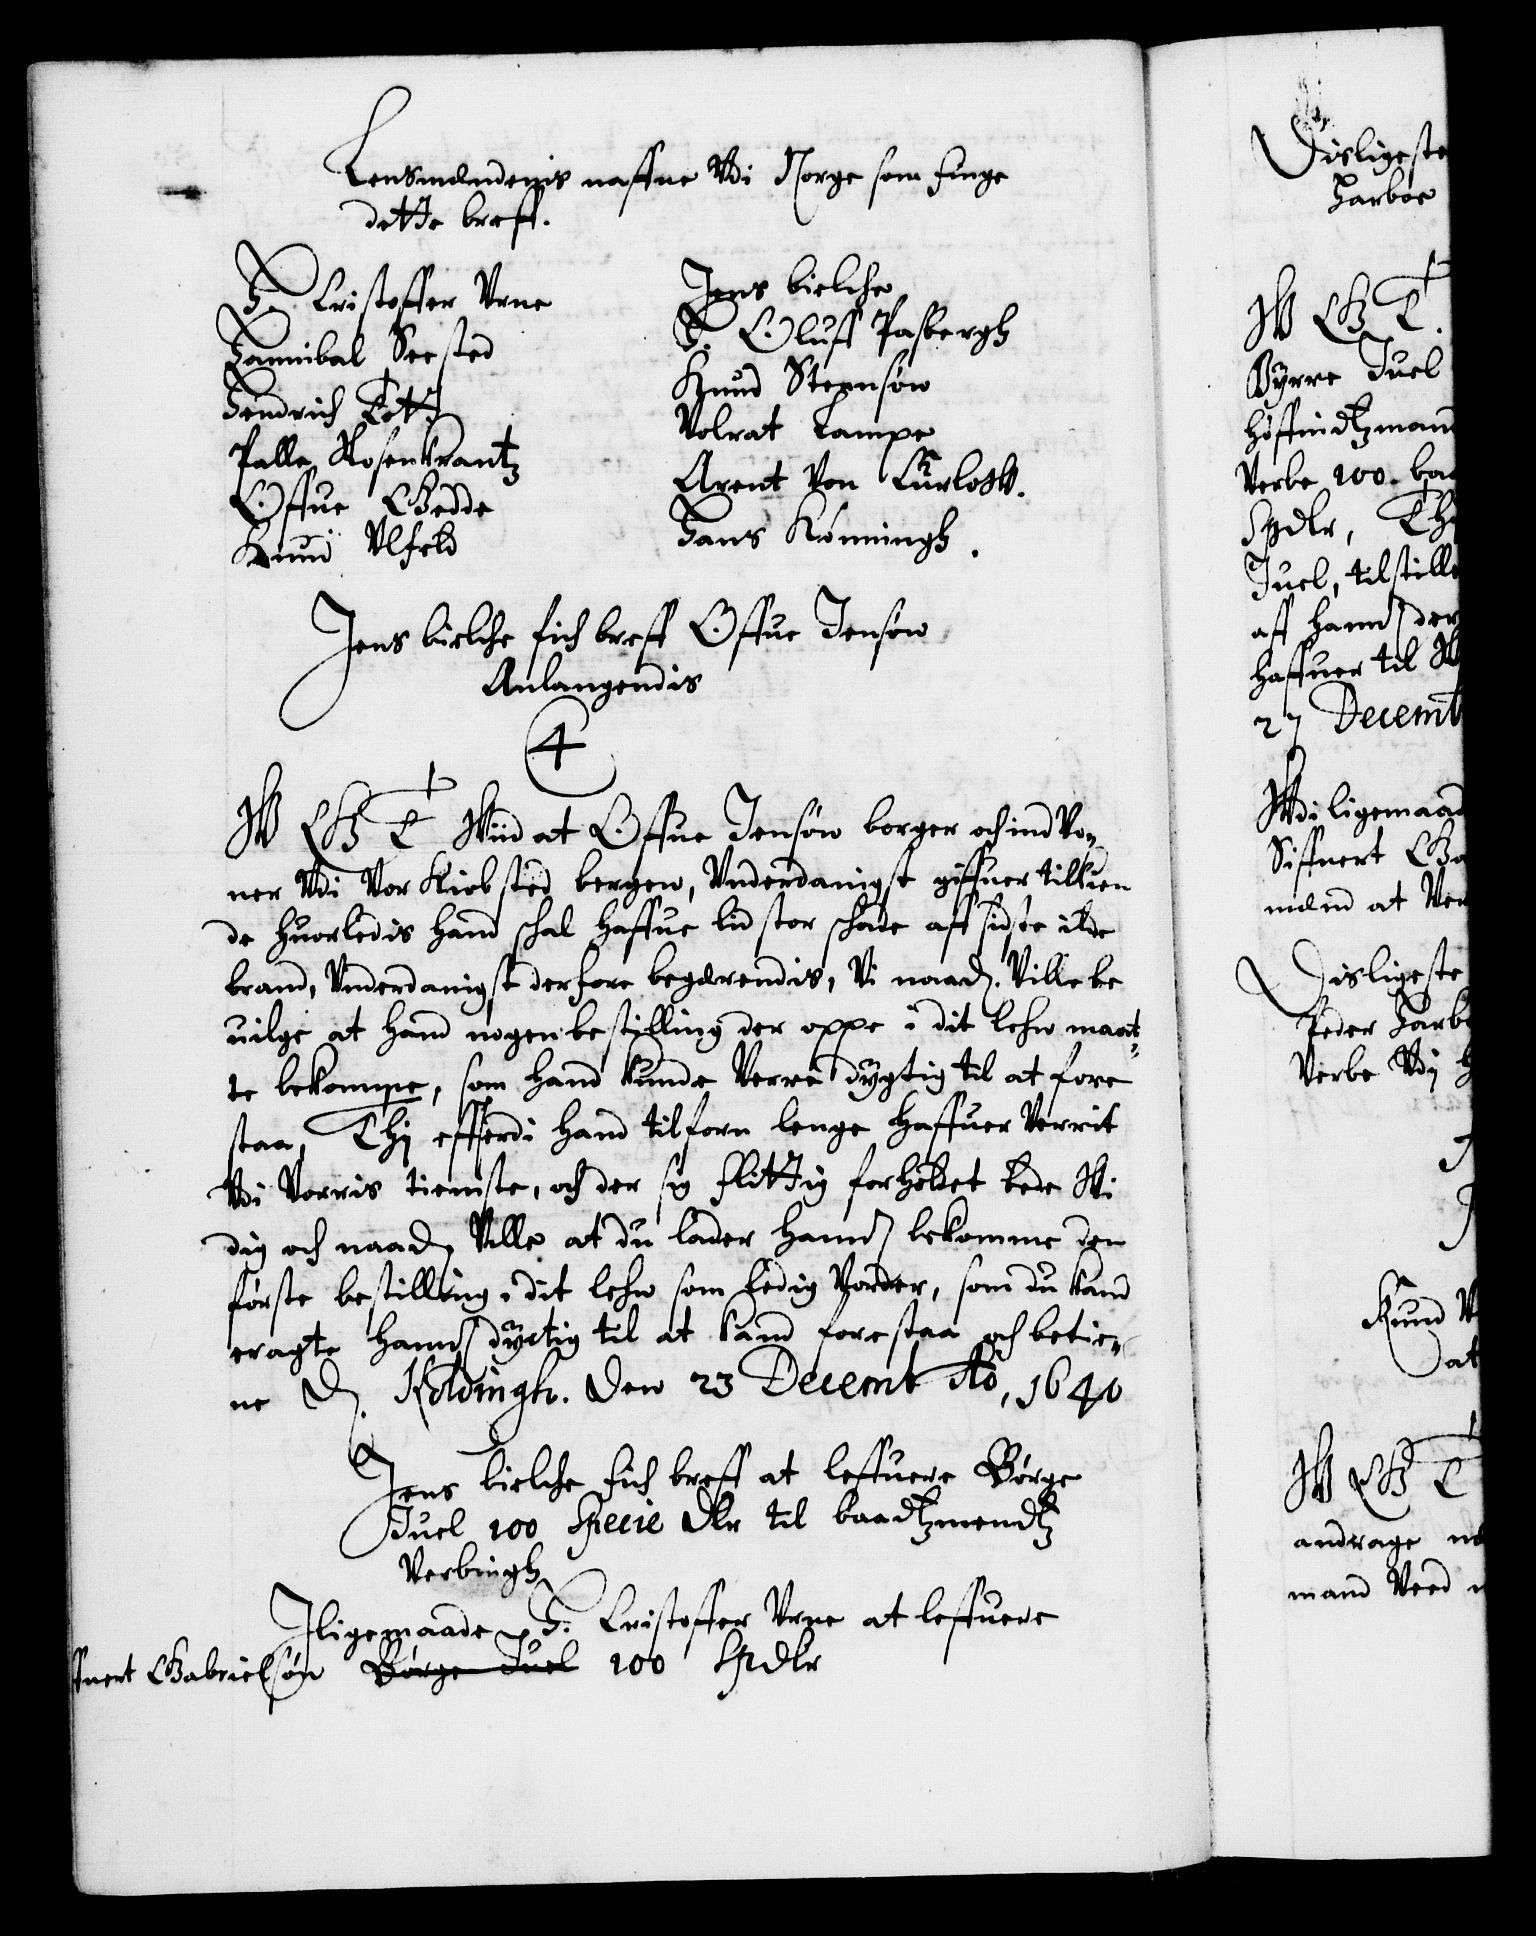 Lensmændenis naffne Vdi Norge som finge
dette breff.
H. Cristoffer Vrne
Hannibal Seested
Hendrich Tott
Palle Rosenkrantz
Offue Giedde
Knud Vlfeld
Jens bielche
H. Oluff Pasbergh
Knud Steensøn
Volrat Lampe
Arent Von Kurlow.
Hans Kønningh.
Jens bielche fich breff Offue Jensøn
Anlangendis
4
W G T Wiid at Offue Jensøn borger och indVo„
ner Vdi Vor Kiøbsted bergen, Vnderdanigst giffuer tilkien
de huorledis hand schal haffue lid stor schade aff sidste ilde
brand, Vnderdanigst derfore begærendis, Vi naad. Ville be
uilge at hand nogen bestilling der oppe i dit lehn maat„
te bekomme, som hand kunde Verre dygtig til at fore
staa, Thj effterdi hand tilforn lenge haffuer Verrit
Vdi Vorris tieniste, och der sig flittig forholdet bede Wi
dig och naad. Ville at du lader hannd bekomme den
første bestilling i dit lehn som ledig Vorder, som du kand
eragte hannd dyctig til at kand forestaa och betie„
ne D. Koldingh. Den 23 Decemb Ao, 1640
Jens bielche fich breff at leffuere Børge
Juel 100 Specie dlr til baadtzmendtz
Verbingh
Jligemaade H. Cristoffer Vrne at leffuere
ffuert Gabrielsøn Børge Juel 100 Spdlr
Disligeste
Harboe
W G T.
Byrre Juel
høffuidtzmand
Verbe 100. baa
Spdlr, Th
Juel, tilstille
aff hannd der
haffuer til
27 Decemb
Wdi ligemaad
Siffuert Ga
mænd at Ver
Disligeste
Peder Harb
Verbe Vdj
Knud V
at
W G T
andrage
mand Veed